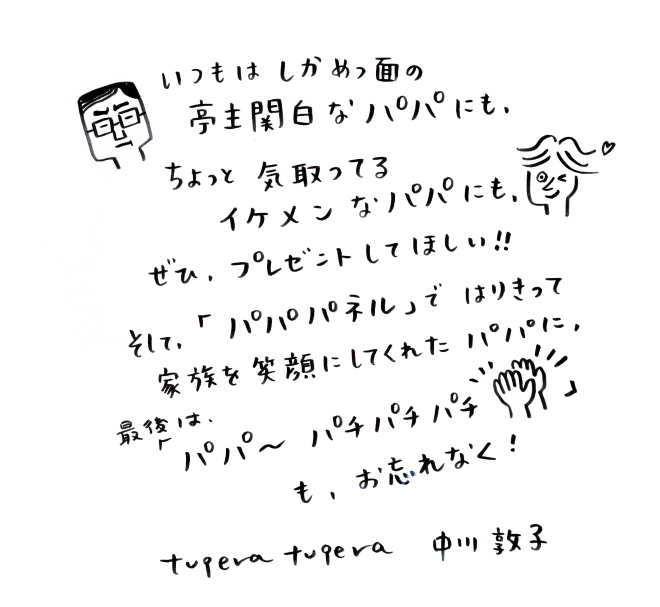 いつもは しかめっ面の
亭主関白な パパにも、
ちょっと 気取ってる
イケメンなパパにも、
ぜひ、プレゼントしてほしい!!
そして、「パパパネル」で はりきって
家族を笑顔にしてくれた パパに、
最後は、
「パパ〜 パチパチパチ」
も、お忘れなく!
tupera tupera 中川敦子